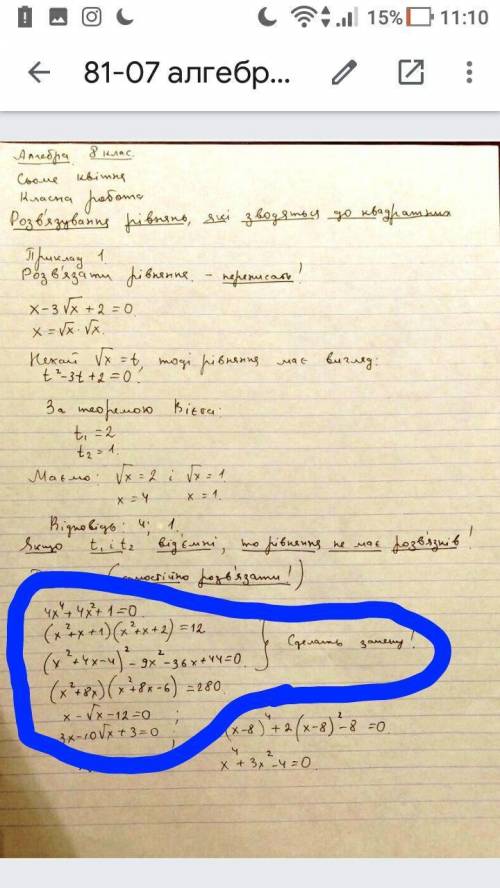 15% 11:10
81-07 алгебр...
Алгебра 8 клас.
Сьоме квітня
Класна робота
Розв'язування рівнянь, які зводяться до квадратних
Приклад 1.
Розв'язати рівняння. - переписать!
x-3√x+2=0.
x=√x·√x.
Нехай √x=t, тоді рівняння має вигляд:
t²-3t+2=0.
За теоремою Вієта:
t₁=2
t₂=1.
Маємо: √x=2 і √x=1.
x=4 x=1.
Відповідь: 4; 1.
Якщо t₁ і t₂ від'ємні, то рівняння не має розв'язків!
(самостійно розв'язати!)
4x⁴+4x²+1=0.
(x²+x+1)(x²+x+2)=12
(x²+4x-4)²-9x²-36x+44=0.
} Сделать замену!
(x²+8x)(x²+8x-6)=280.
x-√x-12=0 ;
3x-10√x+3=0 ; (x-8)⁴+2(x-8)²-8=0
x⁴+3x²-4=0.